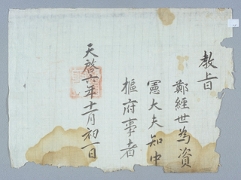 教旨
鄭經世爲資
憲大夫知中
樞府事者
天啓六年十一月初一日